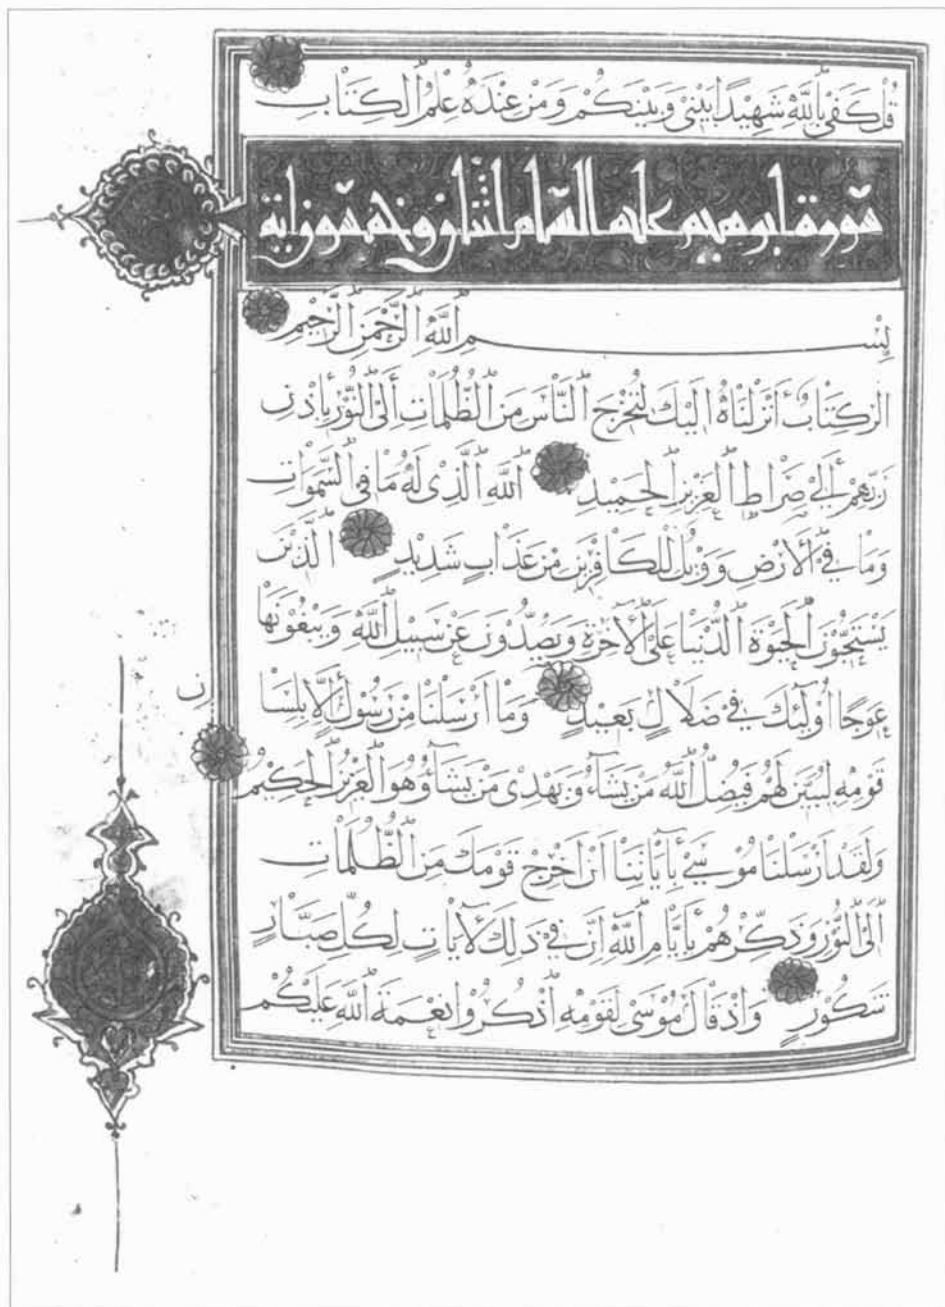 قُلْ كَفَىٰ بِاللَّهِ شَهِيدًا بَيْنِي وَبَيْنَكُمْ وَمَنْ عِنْدَهُ عِلْمُ الْكِتَابِ
سورة ابرهيم عليه السلام اثنان وخمسون اية
بِسْمِ اللَّهِ الرَّحْمَنِ الرَّحِيمِ
الر كِتَابٌ أَنْزَلْنَاهُ إِلَيْكَ لِتُخْرِجَ النَّاسَ مِنَ الظُّلُمَاتِ إِلَى النُّورِ بِإِذْنِ
رَبِّهِمْ إِلَى صِرَاطِ الْعَزِيزِ الْحَمِيدِ اللَّهِ الَّذِي لَهُ مَا فِي السَّمَوَاتِ
وَمَا فِي الْأَرْضِ وَوَيْلٌ لِلْكَافِرِينَ مِنْ عَذَابٍ شَدِيدٍ الَّذِينَ
يَسْتَحِبُّونَ الْحَيَوةَ الدُّنْيَا عَلَى الْآخِرَةِ وَيَصُدُّونَ عَنْ سَبِيلِ اللَّهِ وَيَبْغُونَهَا
عِوَجًا أُولَئِكَ فِي ضَلَالٍ بَعِيدٍ وَمَا أَرْسَلْنَا مِنْ رَسُولٍ إِلَّا بِلِسَا
ن
قَوْمِهِ لِيُبَيِّنَ لَهُمْ فَيُضِلُّ اللَّهُ مَنْ يَشَاءُ وَيَهْدِي مَنْ يَشَاءُ وَهُوَ الْعَزِيزُ الْحَكِيمُ
وَلَقَدْ أَرْسَلْنَا مُوسَى بِآيَاتِنَا أَنْ أَخْرِجْ قَوْمَكَ مِنَ الظُّلُمَاتِ
إِلَى النُّورِ وَذَكِّرْهُمْ بِأَيَّامِ اللَّهِ إِنَّ فِي ذَلِكَ لَآيَاتٍ لِكُلِّ صَبَّارٍ
شَكُورٍ وَإِذْ قَالَ مُوسَى لِقَوْمِهِ اذْكُرُوا نِعْمَةَ اللَّهِ عَلَيْكُمْ